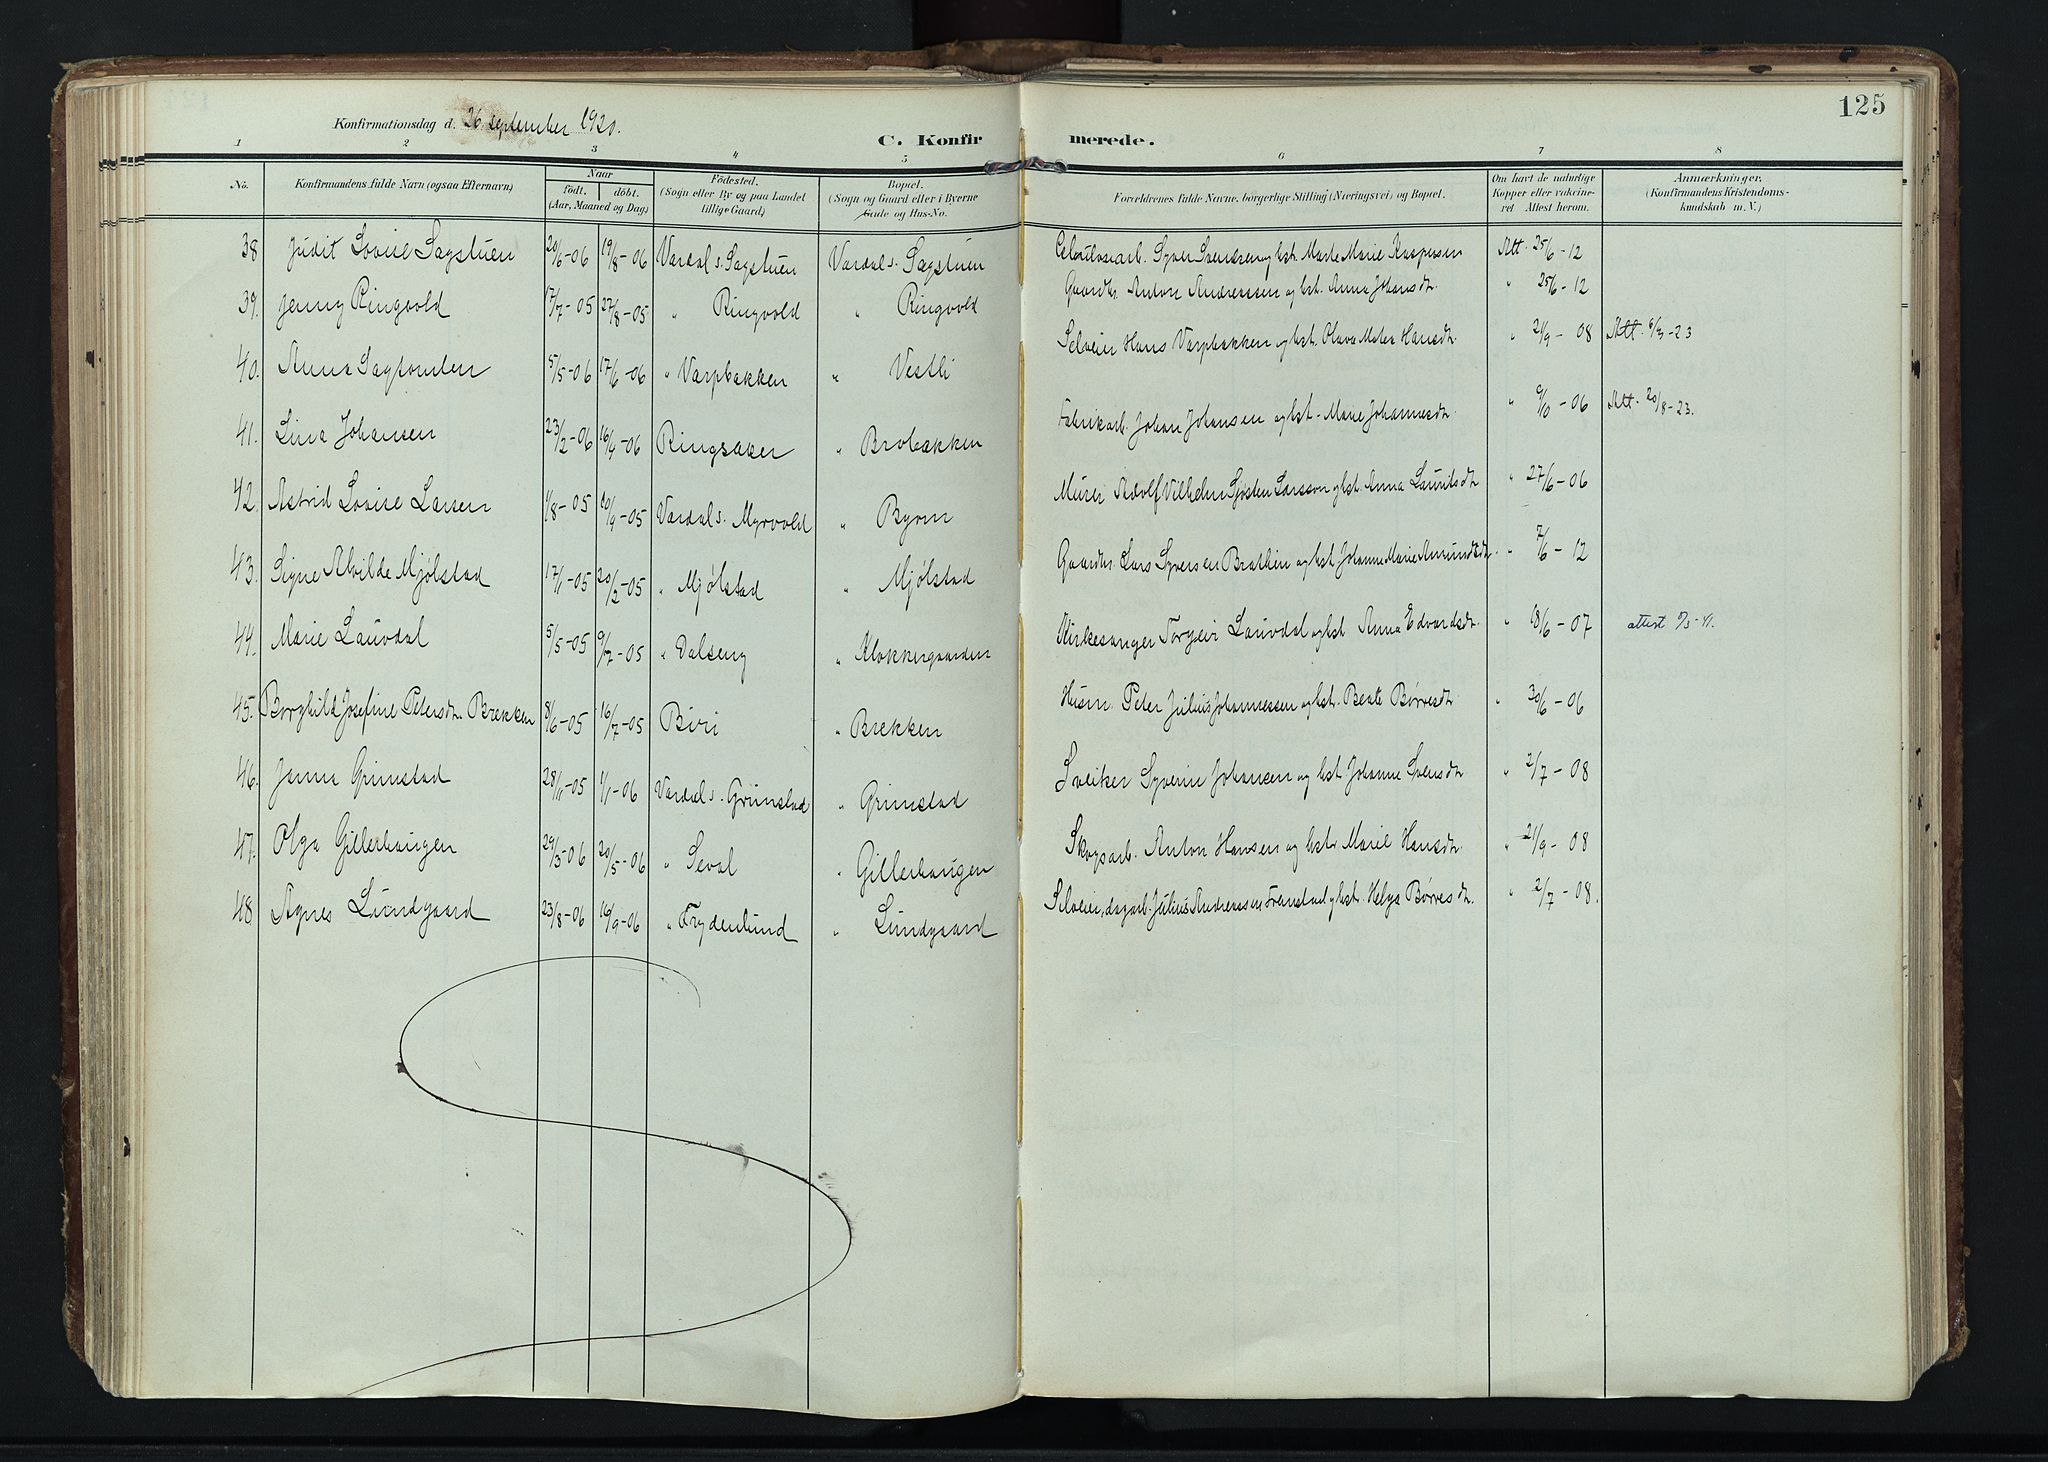 125
Konfirmationsdag d. 26 september 1920.
C. Konfirmerede.
1 2 3 4 5 6 7 8
No. Konfirmandens fulde Navn (ogsaa Efternavn) Naar födt. döbt. (Aar, Maaned og Dag) Födested. (Sogn eller By og paa Landet tillige Gaard) Bopæl. (Sogn og Gaard eller i Byerne Gade og Hus-No. Forældrenes fulde Navne, borgerlige Stilling (Næringsvei) og Bopæl. Om havt de naturlige Kopper eller vakcineret Attest herom. Anmærkninger. (Konfirmandens Kristendomskundskab m. V.)
38 Judit Lovise Sagstuen 20/6-06 19/8-06 Vardal s. Sagstuen Vardal s. Sagstuen Celulosearb. Syver Svendsen og hst. Marte Marie Kaspersen Att. 25/6-12
39. Jenny Ringvold 17/7-05 27/8-05 " Ringvold " Ringvold Gaardbr. Anton Andreassen og hst. Anna Johansdtr. " 25/6-12
40. Anna Sagvonden 5/5-06 17/6-06 " Varpbakken " Vestli Selveier Hans Varpbakken og hst. Olava Matea Hansdtr. " 21/9-08 Att. 6/3-23
41. Lina Johansen 23/2-06 16/4-06 Ringsaker " Brobakken Fabrikarb. Johan Johansen og hst. Marie Johannesdtr. " 9/10-06 Att. 20/8-23.
42. Astrid Lovise Larsen 1/8-05 10/9-05 Vardal s. Myrvold " Byrn Murer Adolf Vilhelm Larsson og hst. Anna Lauritsdtr " 27/6-06
43. Signe Alvilde Mjølstad 17/1-05 20/2-05 " Mjølstad " Mjølstad Gaardbr. Lars Syversen Brathen og hst. Johanne Marie Amundsdtr. " 7/6-12
44. Marie Lauvdal 5/5-05 9/7-05 " Dalseng " Klokkergaarden Kirkesanger Torgeir Lauvdal og hst. Anna Edvardsdtr. " 18/6-07 attest 9/5-41.
45. Borghild Josefine Petersdtr. Brekken 8/6-05 16/7-05 Biri " Brekken Husm. Peter Julius Johannessen og hst. Beate Børresdtr. " 30/6-06
46. Janna Grimstad 28/11-05 1/1-06 Vardal s. Grimstad " Grimstad Sveiker Syverin Johansen og hst. Johanne Iversdtr " 2/7-08
47. Olga Gillerhaugen 29/3-06 20/5-06 " Seval " Gillerhaugen Skogsarb. Anton Hansen og hst. Marie Hansdtr. " 21/9-08
48. Agnes Lundgaard 23/8-06 16/9-06 " Frydenlund " Lundgaard Selveier, dagarb. Julius Andreassen og hst. Helga Børresdtr " 2/7-08.